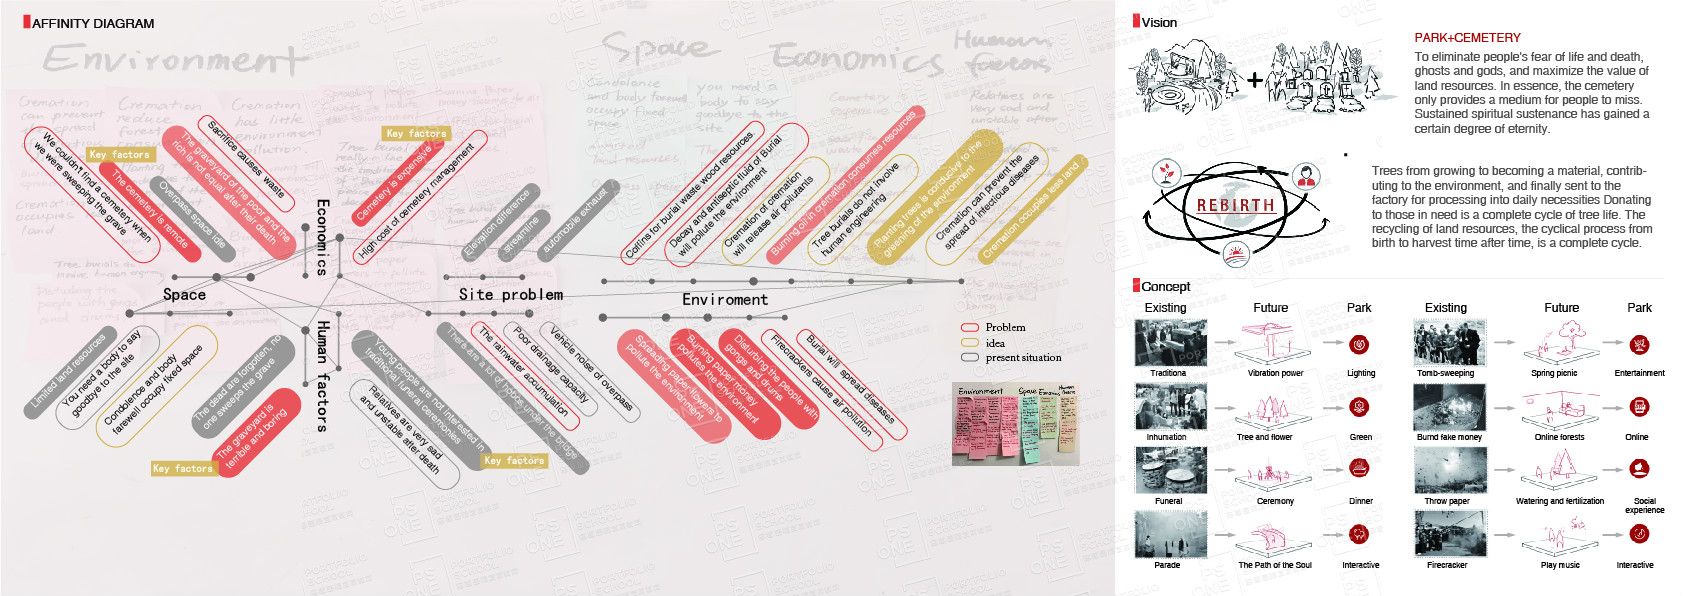 AFFINITY DIAGRAM
Environment
Space
Economics
Human
factors
Key factors
We couldn't find a cemetery when
we were sweeping the grave
The cemetery is remote
Overpass space idle
The graveyard of the poor and the
rich is not equal after their death
Sacrifice causes waste
Key factors
Cemetery is expensive
High cost of cemetery management
Elevation difference
streamline
automobile exhaust
Coffins for burial waste wood resources.
Decay and antiseptic fluid of Burial
will pollute the environment
Cremation of cremation
will release air pollutants
Burning oil in cremation consumes resources
Tree burials do not involve
human engineering
Planting trees is conducive to the
greening of the environment
Cremation can prevent the
spread of infectious diseases
Cremation occupies less land
Economics
Space
Site problem
Enviroment
Human factors
Limited land resources
You need a body to say
goodbye to the site
Condolence and body
farewell occupy fixed space
The dead are forgotten, no
one sweeps the grave
The graveyard is
terrible and boring
Key factors
Young people are not interested in
traditional funeral ceremonies
Relatives are very sad
and unstable after death
Key factors
There are a lot of hobos under the bridge
The rainwater accumulation
Poor drainage capacity
Vehicle noise of overpass
Spreading paper flowers to
pollutes the environment
Burning paper money
pollutes the environment
Disturbing the people with
gongs and drums
Firecrackers cause air pollution
Burial will spread diseases
Problem
idea
present situation
Vision
PARK+CEMETERY
To eliminate people's fear of life and death,
ghosts and gods, and maximize the value of
land resources. In essence, the cemetery
only provides a medium for people to miss.
Sustained spiritual sustenance has gained a
certain degree of eternity.
REBIRTH
Trees from growing to becoming a material, contrib-
uting to the environment, and finally sent to the
factory for processing into daily necessities Donating
to those in need is a complete cycle of tree life. The
recycling of land resources, the cyclical process from
birth to harvest time after time, is a complete cycle.
Concept
Existing Future Park Existing Future Park
Traditiona Vibration power Lighting Tomb-sweeping Spring picnic Entertainment
Inhumation Tree and flower Green Burnd fake money Online forests Online
Funeral Ceremony Dinner Throw paper Watering and fertilization Social
experience
Parade The Path of the Soul Interactive Firecracker Play music Interactive